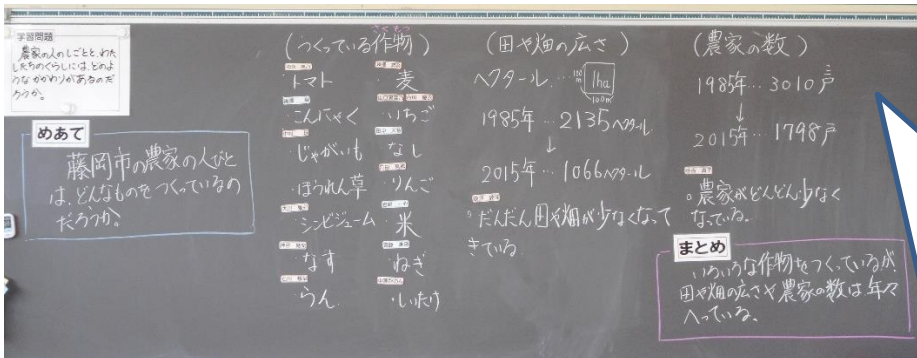 学習問題
農家の人のしごとと、わた
したちのくらしには、どのよ
うなかかわりがあるのだ
ろうか。
めあて
藤岡市の農家の人びと
は、どんなものをつくっているの
だろうか。
(つくっている作物)
・トマト
・こんにゃく
・じゃがいも
・ほうれん草
・シンビジューム
・なす
・らん
・麦
・いちご
・なし
・りんご
・米
・ねぎ
・しいたけ
(田や畑の広さ)
ヘクタール… 100m 1ha
100m
1985年…2135ヘクタール
↓
2015年…1066ヘクタール
○だんだん田や畑が少なくなって
きている。
(農家の数)
1985年…3010戸
↓
2015年…1798戸
○農家がどんどん少なく
なっている。
まとめ
いろいろな作物をつくっているが、
田や畑の広さや農家の数は年々
へっている。